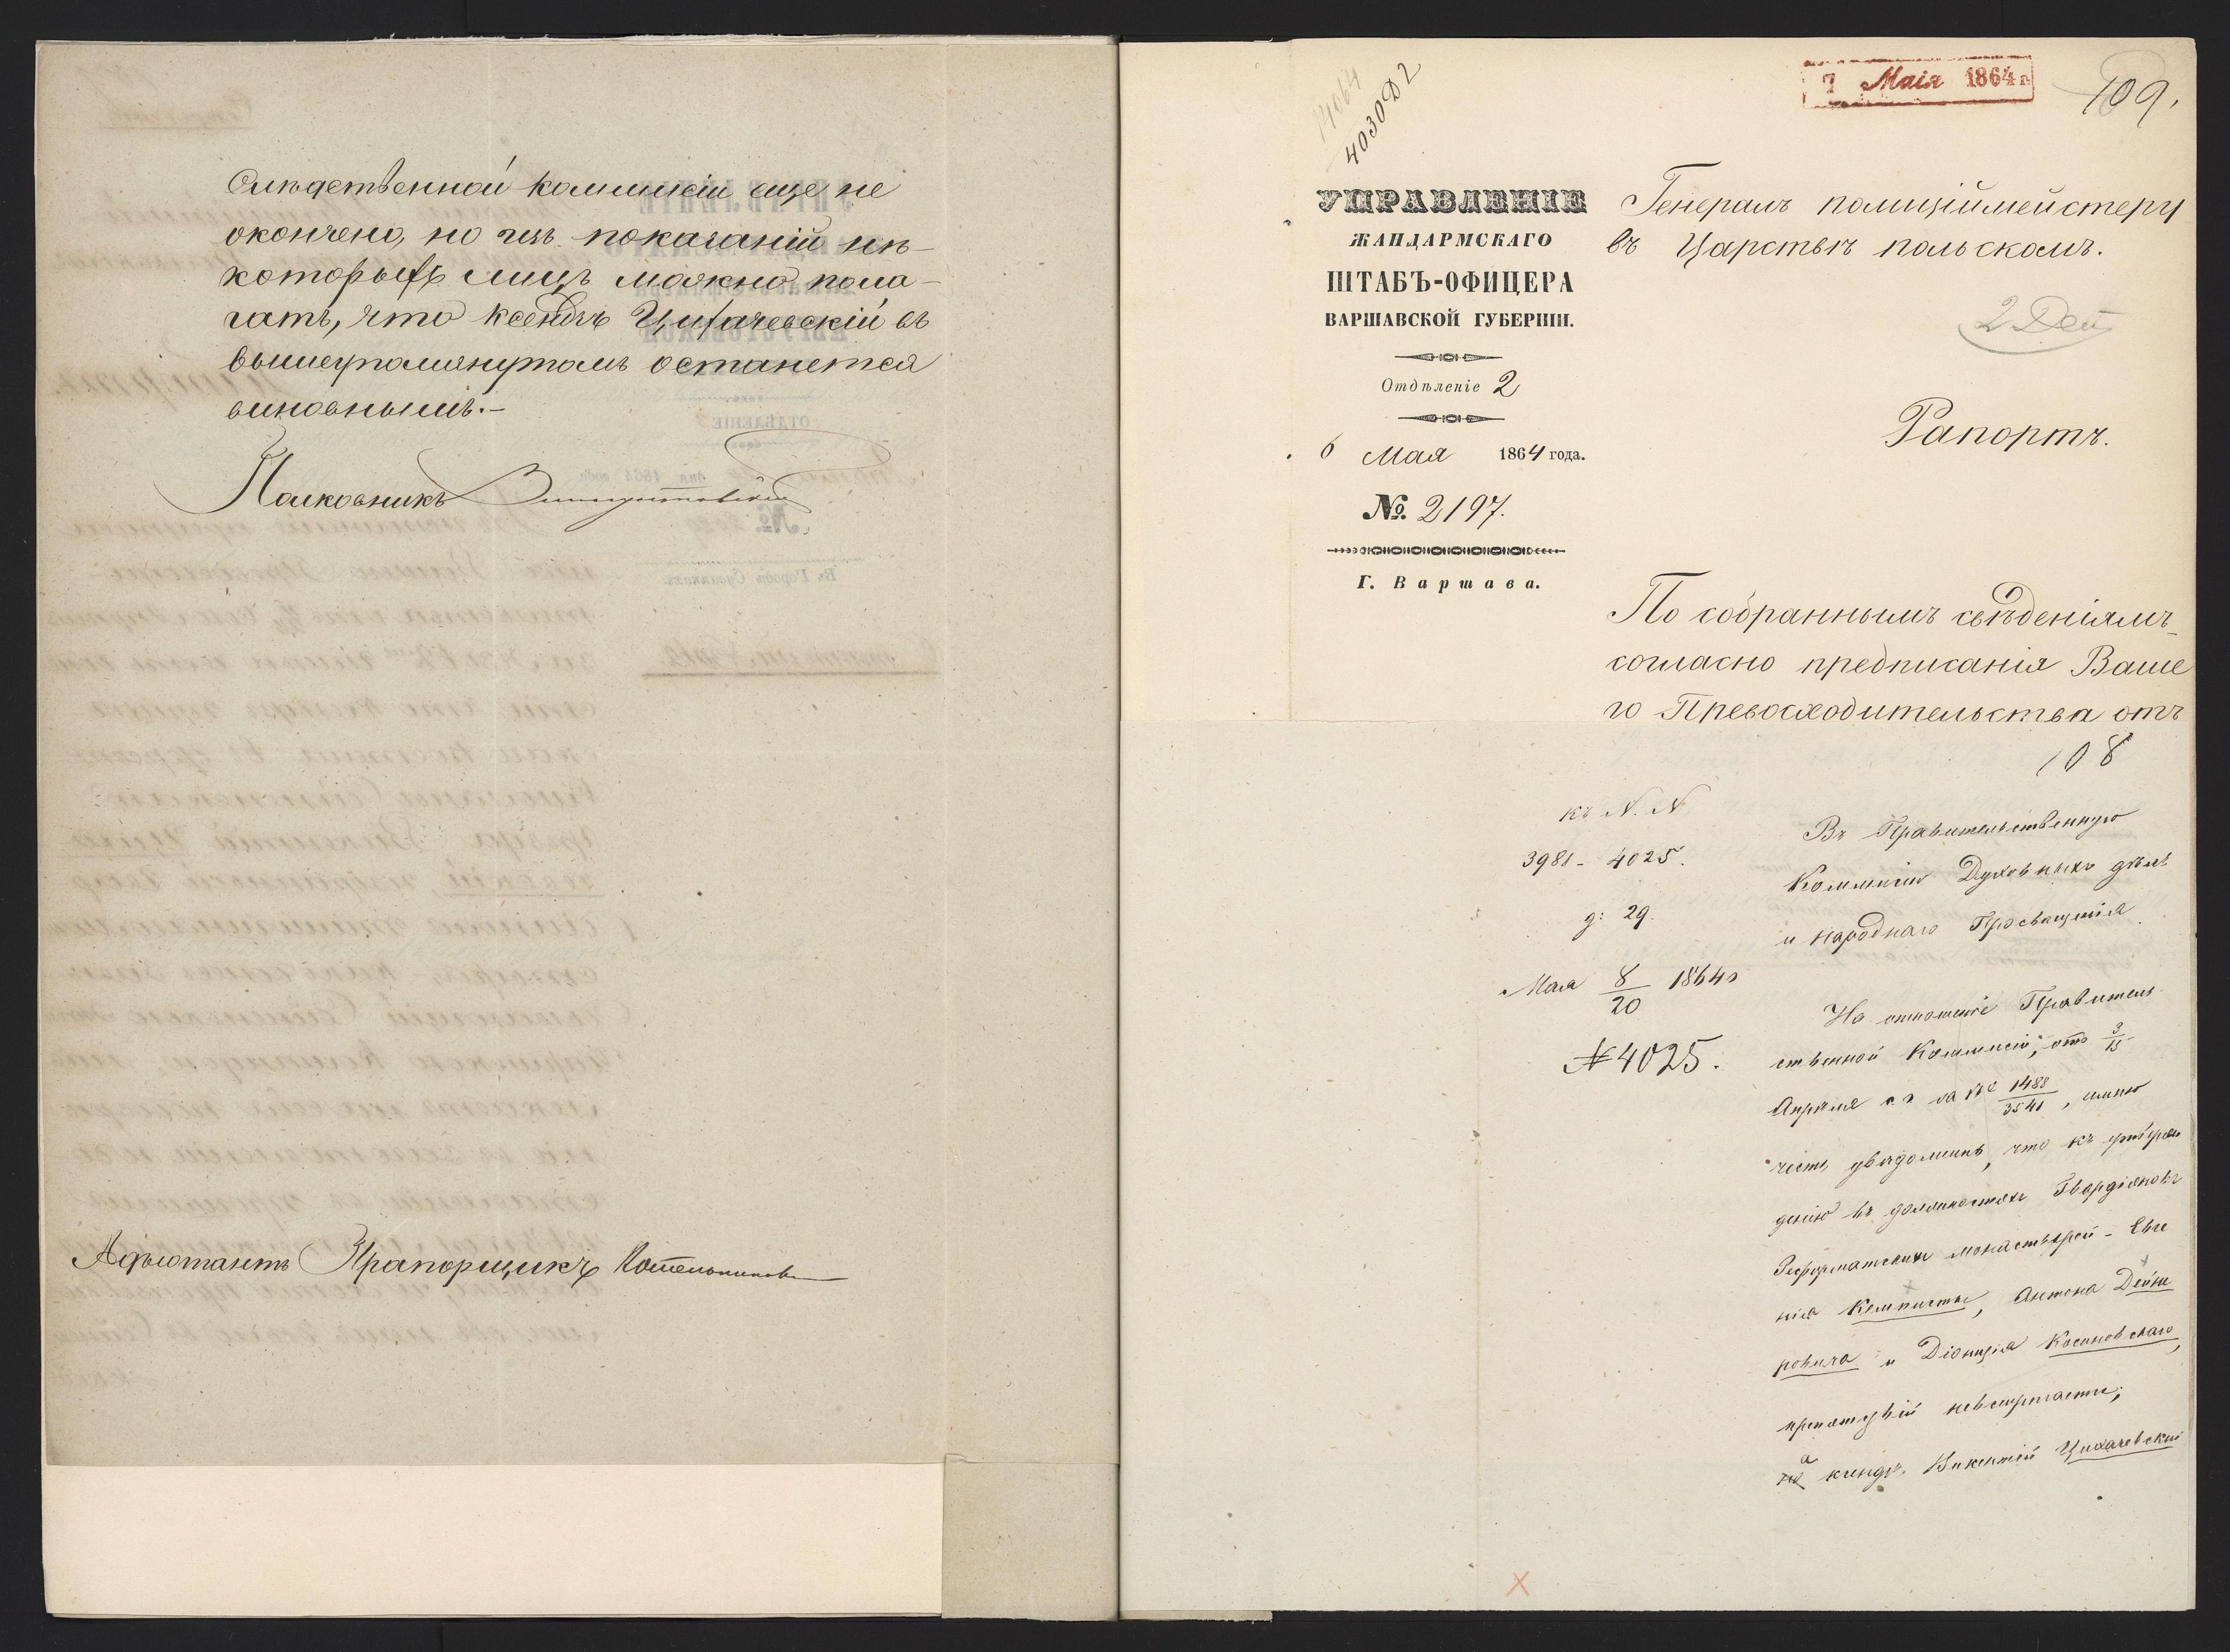 Слѣдственной коммисіи еще не
окончено, но изъ показаній нѣ-
которыхъ лицъ можно пола-
гать, что ксендзъ Цихачевскій въ
вышеупомянутомъ останется
виновнымъ.-
Полковникъ
Адъютантъ Прапорщикъ Котельников
7 Маія 1864 г.
109.
14064
4030 Д 2
УПРАВЛЕНІЕ
ЖАНДАРМСКАГО
ШТАБЪ-ОФИЦЕРА
ВАРШАВСКОЙ ГУБЕРНІИ.
Отдѣленіе 2
6 Мая 1864 года.
№ 2197.
Г. Варшава.
Генералъ полиціймейстеру
въ Царствѣ польскомъ.
2 Деп
Рапортъ.
По собраннымъ свѣденіямъ
согласно предписанія Ваше
го Превосходительства отъ
108
къ N. N
3981 - 4025.
д: 29.
Мая 8/20 1864
№ 4025.
Въ Правительственную
Коммисію Духовныхъ дѣлъ
и Народнаго Просвѣщенія
На отношеніе Правитель
ственной Коммисіи, отъ 3/15
Апрѣля с. г. за № 1488/3541, имѣю
честь увѣдомить, что къ утвер
денію въ должностяхъ Гвардіановъ
Реформатскихъ монастырей - Евге
нія Кемписты, Антона
ровича и Діонизія Косиновскаго,
препятствій невстрѣчается;
а ксендзъ Викентій Цихачевскій